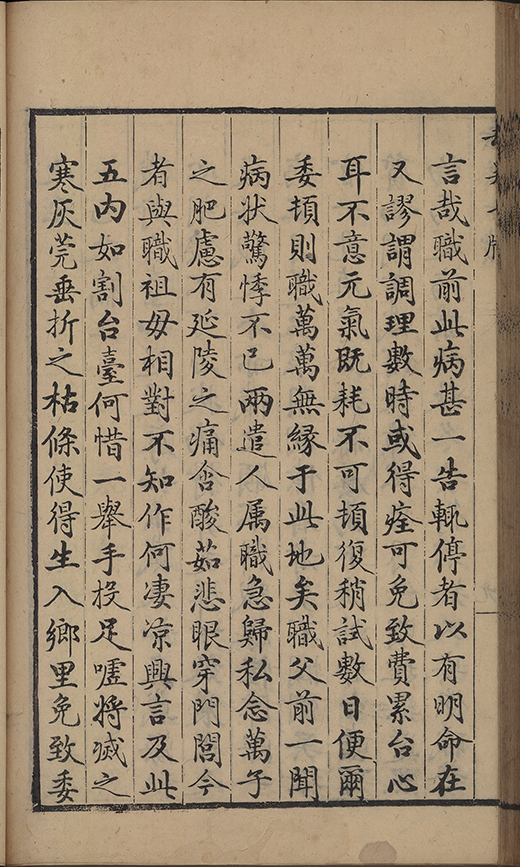 言哉職前此病甚一告輒停者以有明命在
又謬謂調理數時或得痊可免致費累台心
耳不意元氣既耗不可頓復稍試數日便爾
委頓則職萬萬無緣于此地矣職父前一聞
病狀驚悸不已兩遣人属職急歸私念萬子
之肥慮有延陵之痛含酸茹悲眼穿門閭今
者與職祖毋相對不知作何凄凉興言及此
五内如割台臺何惜一舉手投足噓將滅之
寒灰莞垂折之枯條使得生入鄉里免致委